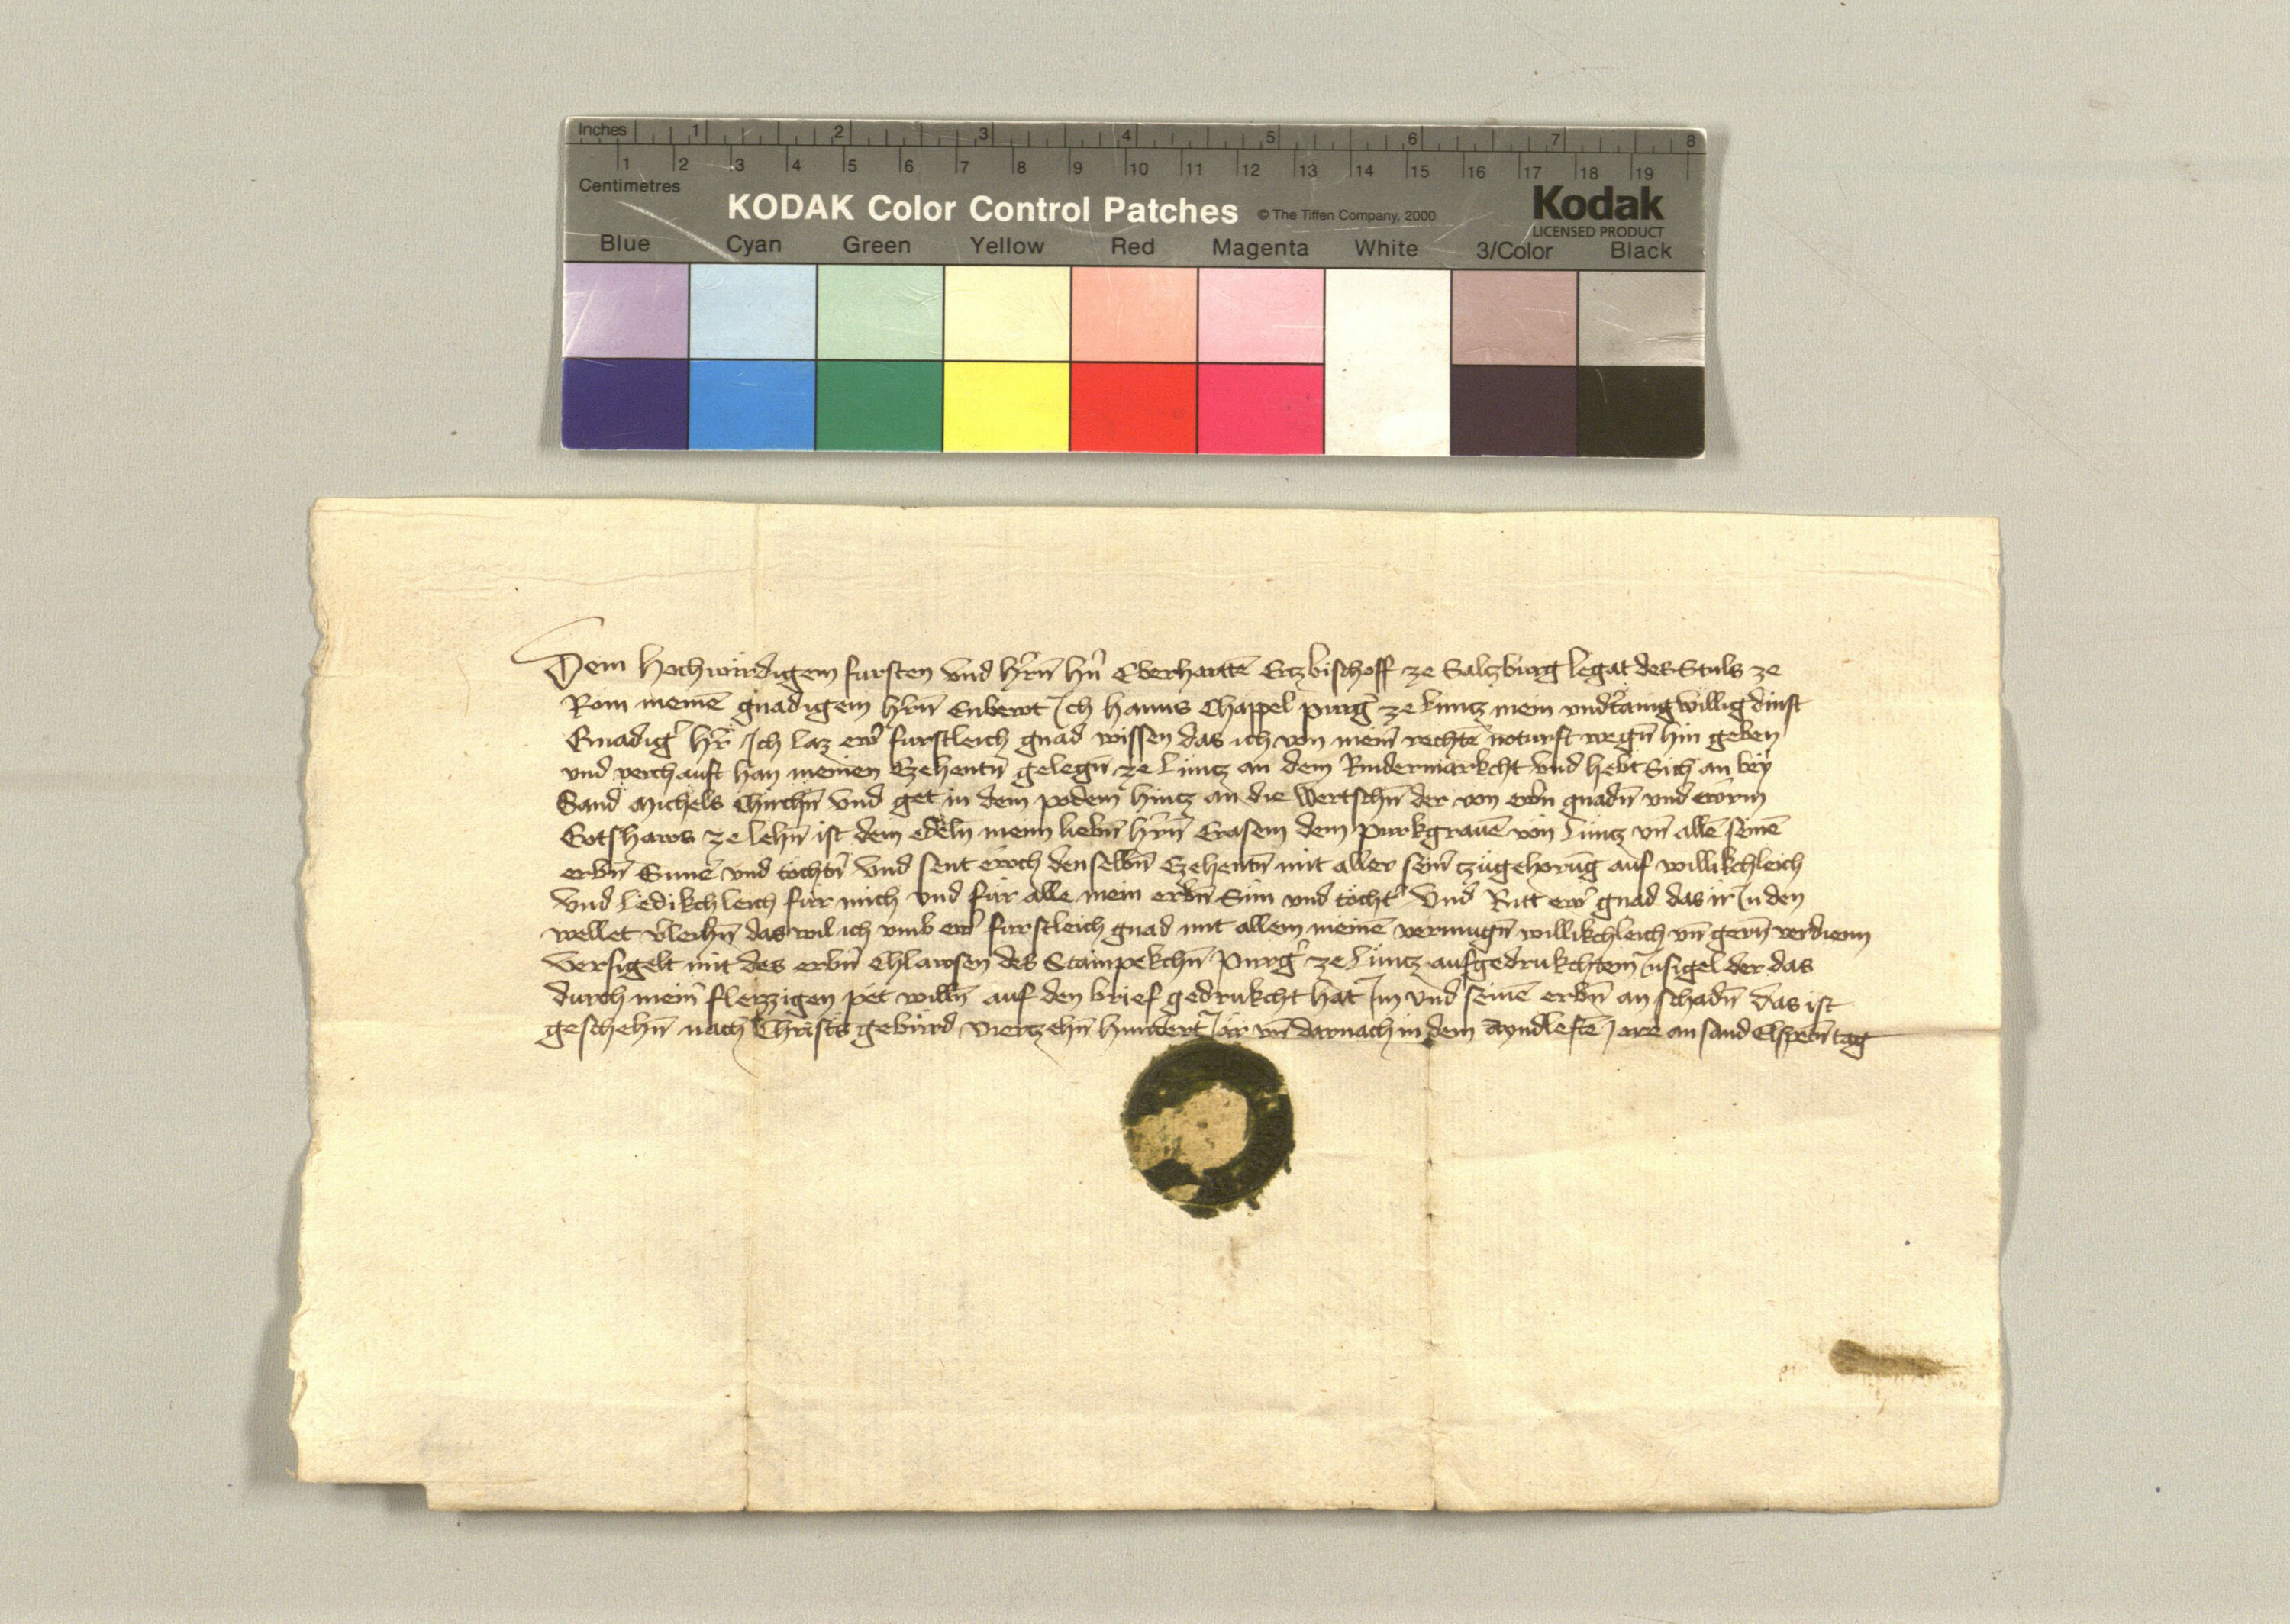 Inches 1 2 3 4 5 6 7 8
1 2 3 4 5 6 7 8 9 10 11 12 13 14 15 16 17 18 19
Centimetres
KODAK Color Control Patches © The Tiffen Company, 2000 Kodak
LICENSED PRODUCT
Blue Cyan Green Yellow Red Magenta White 3/Color Black
Dem hochwirdigem fursten vnd h'rn̄ h'n Eberhartē Ertzbischoff ze Saltzburg legat des Stuls ze
Rom meinē gnadigem h'rn̄ Enbewt Ich Hanns Chappel purg' ze Luntz mein vnd'tanig willig dinst
Gnadig' h'r Ich laz ew' furstleich gnad wissen das ich von mein' rechtē noturft wegn̄ hin geben
vnd verchauft han meinen Czehentn̄ gelegn̄ ze Luntz an dem Rindermarkcht vnd hebt sich an bey
Sand Michels Chirchn̄ vnd get in dem podem hintz an die der von ewrn gnadn̄ vnd ewrm
Gotshaws ze lehn̄ ist dem edeln̄ meinn liebn̄ h'rn̄ Erasem dem purkgrauē von Luntz vn̄ allē seinē
erbn̄ Sunē vnd tochtn̄ vnd sent ewch denselbn̄ Czehentn̄ mit aller sein' tzugehorūg auf willikchleich
vnd ledikchleich fur mich vnd fur alle mein erbn̄ Sun vnd tocht' vnd Bitt ew' gnad das ir In den
wellet v'leihn̄ das wil ich vmb ew' furstleich gnad mit allem meinē vermugn̄ willikchleich vn̄ gern̄ verdienn
versigelt mit des erbn̄ Chlawsen des Stampekchn̄ Purg' ze Luntz aufgedrukchtem Insigel der das
durch mein' fleizzigen pet willn̄ auf den brief gedrukcht hat Im vnd seinē erbn̄ an schadn̄ das ist
geschehn̄ nach Christs geburd viertzehn̄ hundert Iar vn̄ darnach in dem ayndleftē Iare an sand Elspetn̄ tag